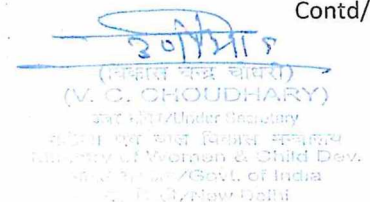 Contd/
(विकास चन्द्र चौधरी)
(V. C. CHOUDHARY)
/Under Secretary
एवं बाल विकास मंत्रालय
Ministry of Women & Child Dev.
/Govt. of India
/New Delhi